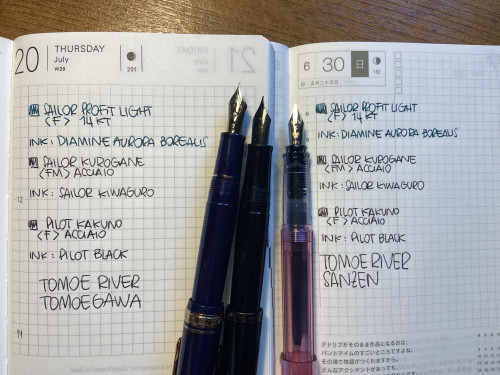 20
THURSDAY
July
W29
201
12
14
SAILOR PROFIT LIGHT
<F> 14 KT
INK: DIAMINE AURORA BOREALIS
SAILOR KUROGANE
<FM> ACCIAIO
INK: SAILOR KIWAGURO
PILOT KAKUNO
<F> ACCIAIO
INK: PILOT BLACK
TOMOE RIVER
TOMOEGAWA
21
FRIDAY
6
30
日
SAILOR PROFIT LIGHT
<F> 14 KT
INK: DIAMINE AURORA BOREALIS
SAILOR KUROGANE
<FM> ACCIAIO
INK: SAILOR KIWAGURO
PILOT KAKUNO
<F> ACCIAIO
INK: PILOT BLACK
TOMOE RIVER
SANZEN
アドリブがそのまま作品になるのは、
パントマイムのすごいところですよね。
その場で物語がつくれますから。
どんなアクシデントがあっても、